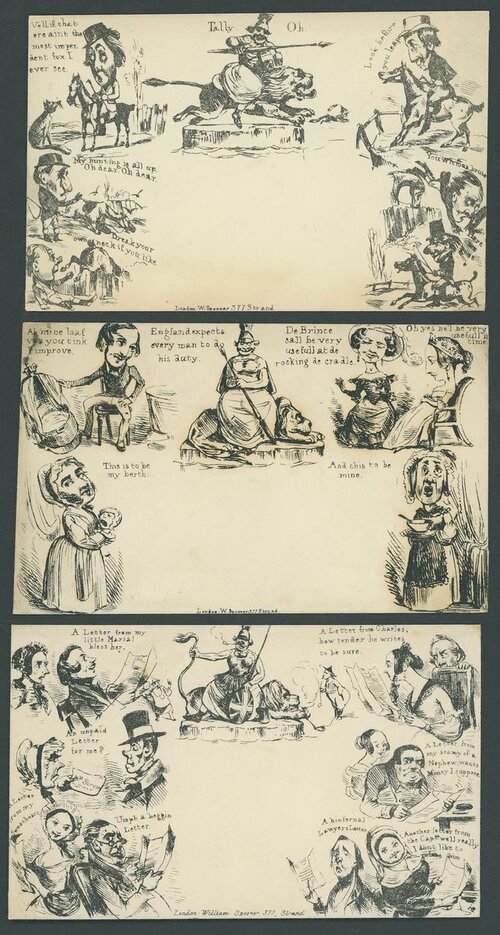 Vell if that
ere aint the
most imper
dent fox I
ever see.
Tally Oh
Look before
you leap
My hunting is all up.
Oh dear Oh dear.
Break your
own neck if you like.
London. W. Spooner 377 Strand
Ah mine loaf
you tink
improve.
England expects
every man to do
his duty.
De Brince
sall be very
usefull at de
rocking de cradle.
Oh yes he'l be very
usefull in
time.
This is to be
my berth.
And this to be
mine.
London. W. Spooner 377 Strand
A Letter from my
little Maria!
bless her.
A Letter from Charles,
how tender he writes
to be sure.
An unpaid
Letter
for me?
A Letter from
my scamp of a
Nephew, wants
Money I suppose
A Letter
from my
sweetheart
Umph a beggin
Letter
A hinfernal
Lawyers Letter
Another letter from
the Capt. well really
I dont like to
refuse him
London. William Spooner 377, Strand